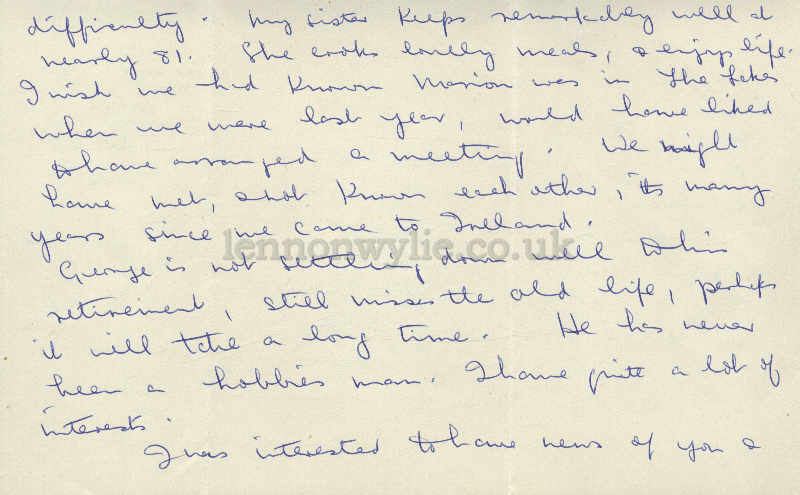 difficulty. My sister keeps remarkably well at
nearly 81. She cooks lovely meals, & enjoys life.
I wish we had known Marion was in The Lakes
when we were last year, would have liked
to have arranged a meeting. We might
have met, & not known each other, its many
years since we came to Ireland.
lennonwylie.co.uk
George is not settling down well to his
retirement, still misses the old life, perhaps
it will take a long time. He has never
been a hobbies man. I have quite a lot of
interests.
I was interested to have news of you &